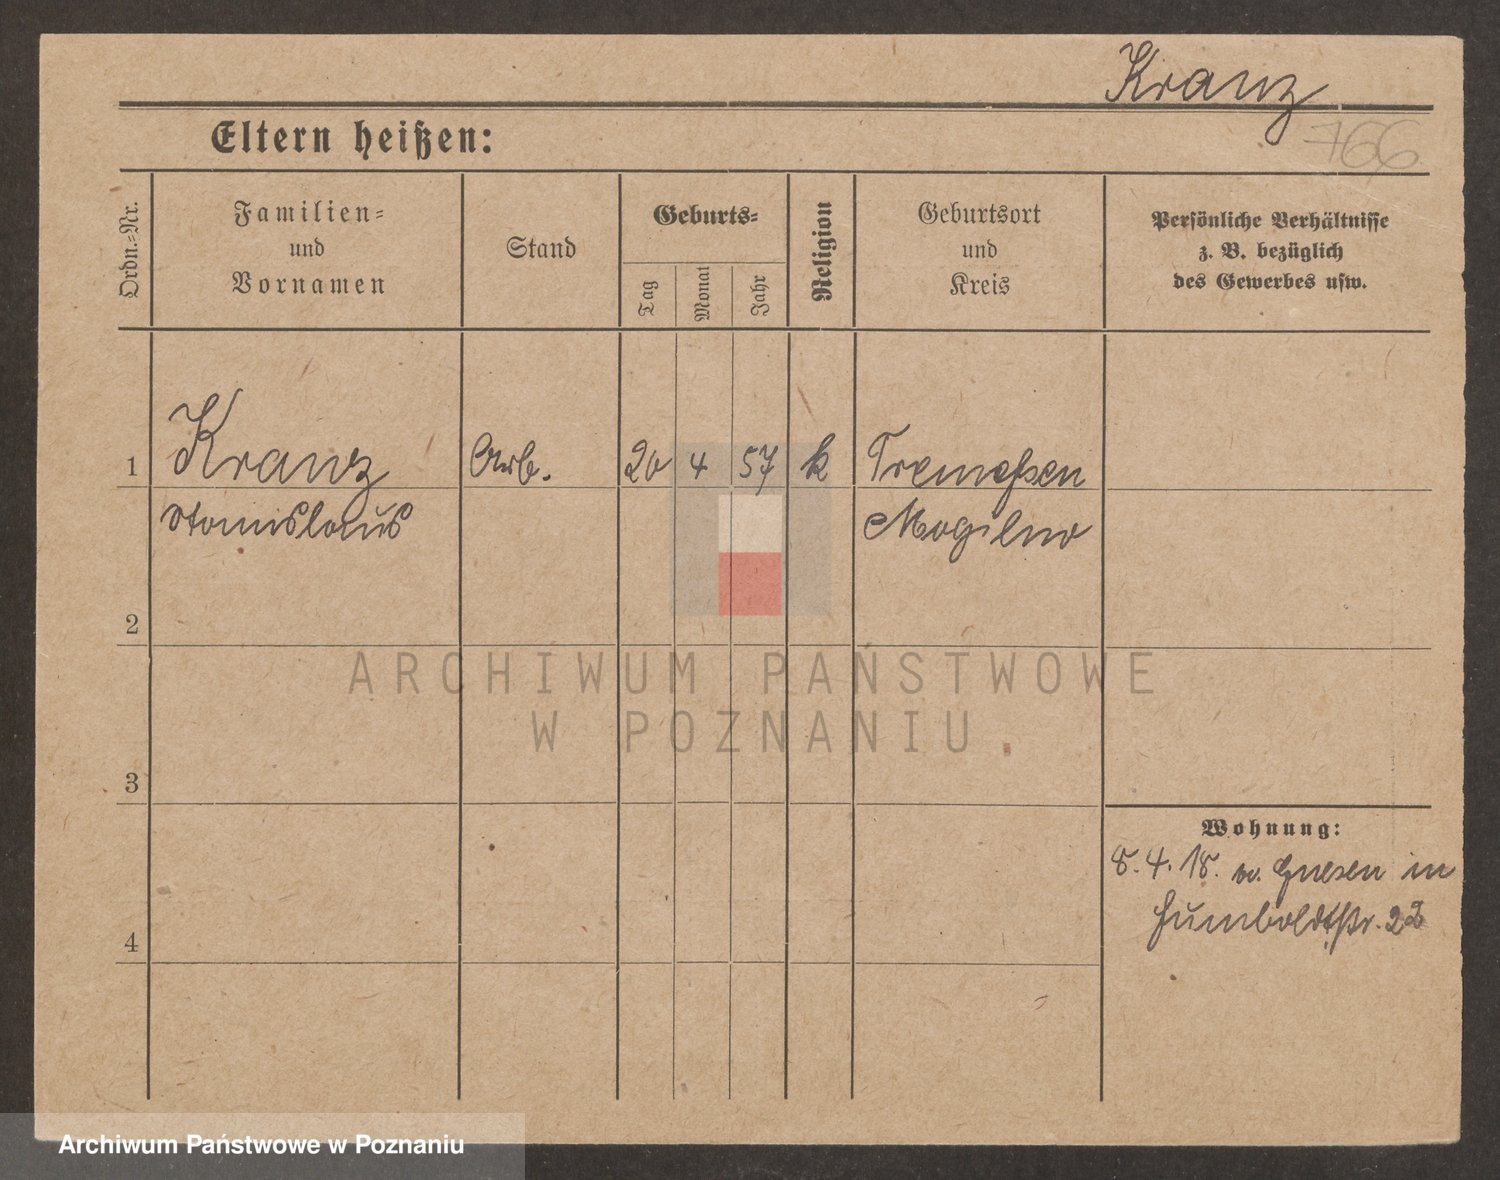 Kranz
766
Eltern heißen:
Ordn.=Nr.
Familien=
und
Vornamen
Stand
Geburts=
Tag
Monat
Jahr
Religion
Geburtsort
und
Kreis
Persönliche Verhältnisse
z. B. bezüglich
des Gewerbes usw.
1
Kranz
Arb.
20
4
57
k
Tremessen
Stanislaus
Mogilno
2
ARCHIWUM PAŃSTWOWE
W POZNANIU
3
Wohnung:
8. 4. 18. v. Gnesen in
Humboldtstr. 22
4
Archiwum Państwowe w Poznaniu